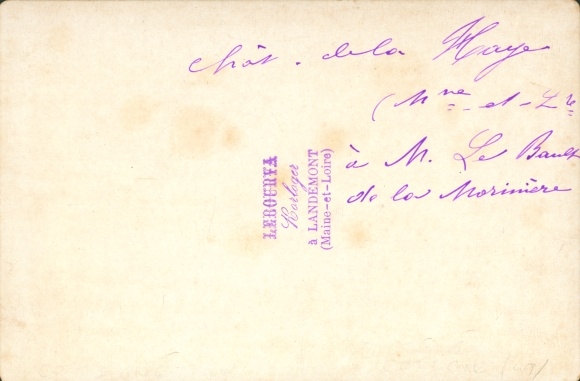 Chât. de la Haye
(M ne et - L re
à M. Le Bault
de la Morinière
LEBOURVA
Horloger
à LANDEMONT
(Maine-et-Loire)